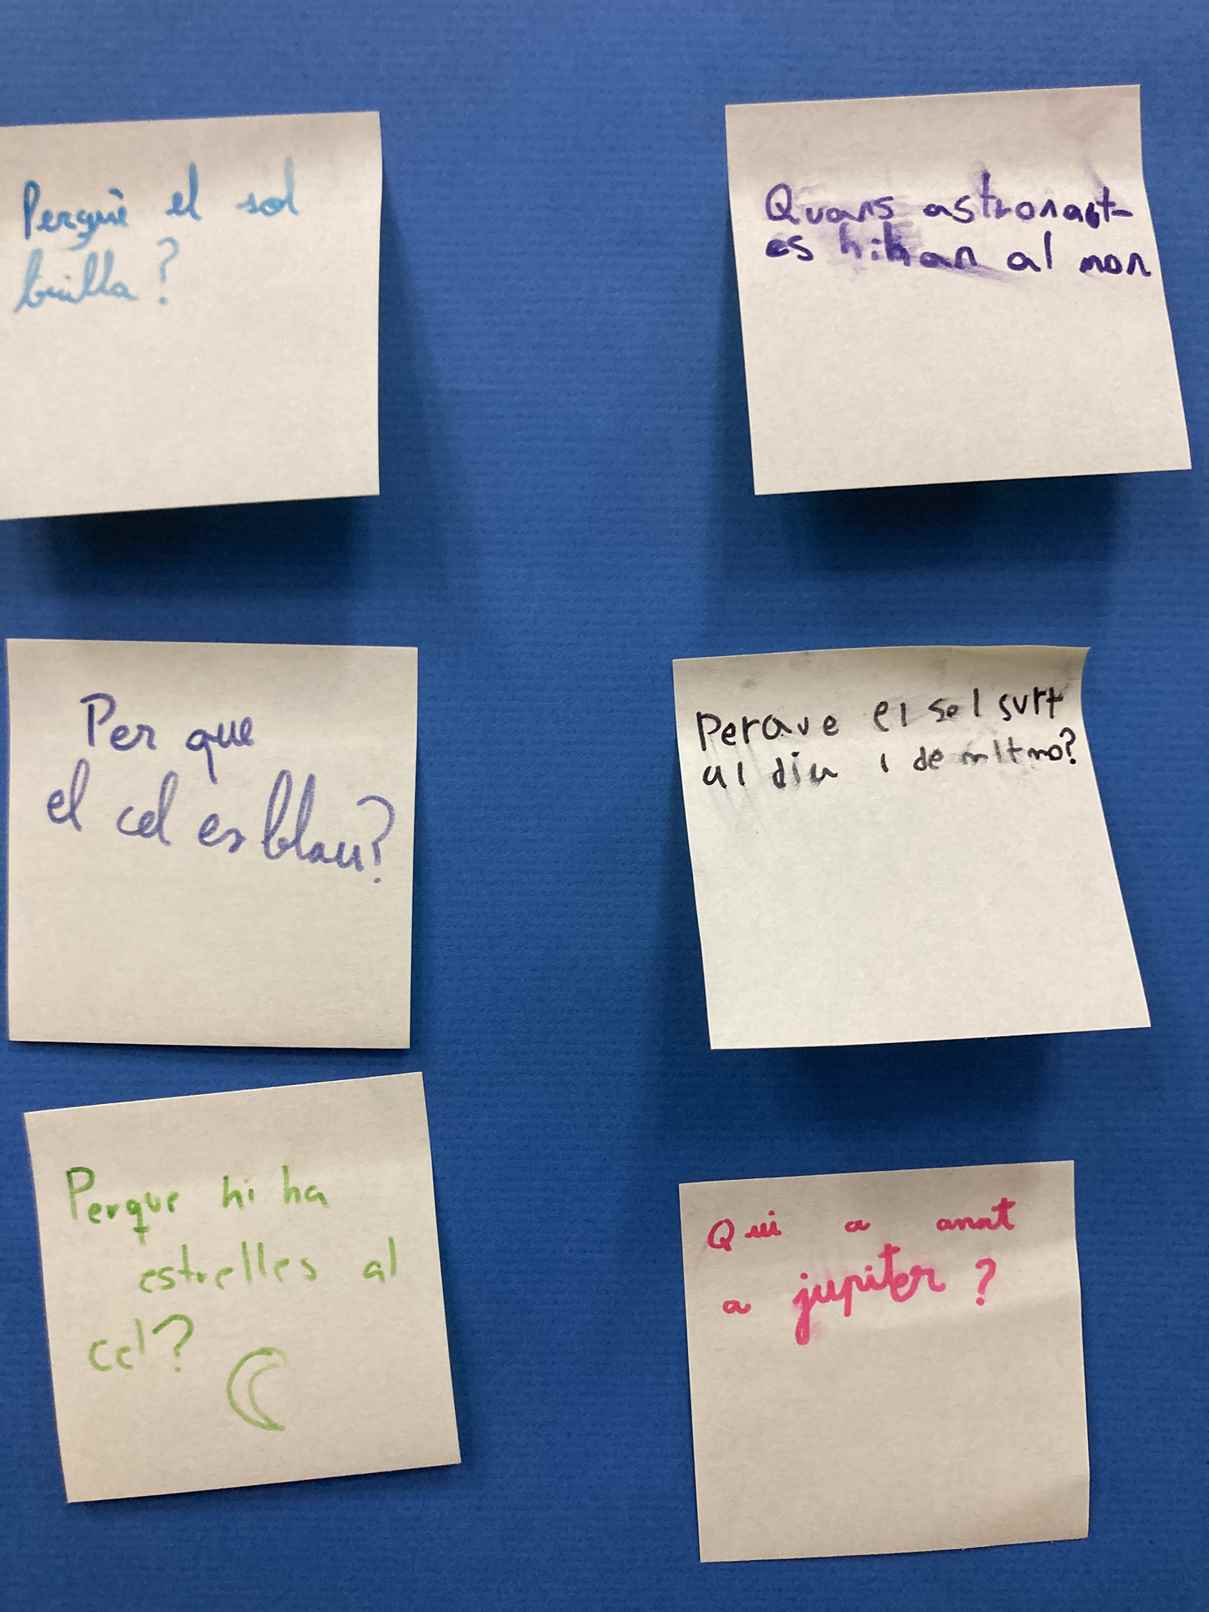 Perquè el sol
brilla?
Quans astronaut-
es hihan al mon
Per que
el cel es blau?
Perque el sol surt
al dia i de nit no?
Perque hi ha
estrelles al
cel?
Qui a anat
a jupiter?